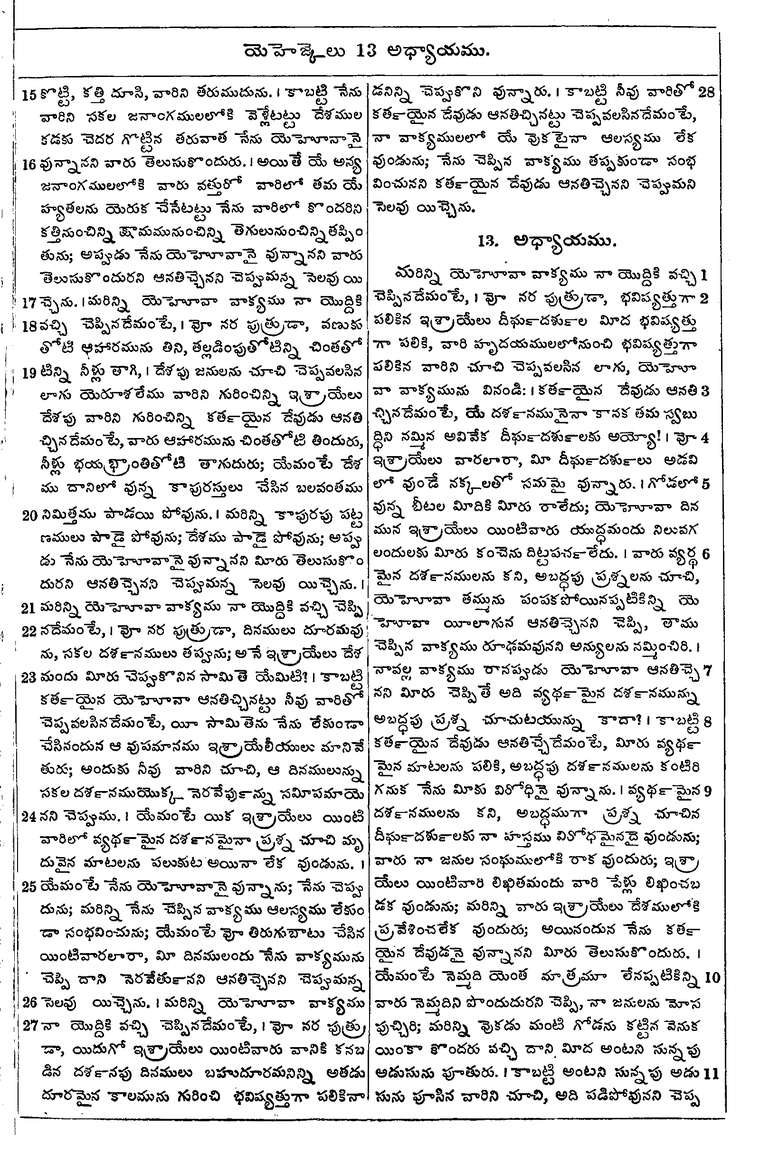 యెహెజ్కేలు 13 అధ్యాయము.
15 కొట్టి, కత్తి దూసి, వారిని తరుముదును. । కాబట్టి నేను
వారిని సకల జనాంగములలోకి వెళ్లేటట్టు దేశముల
కడకు చెదర గొట్టిన తరువాత నేను యెహోవానై
16 వున్నానని వారు తెలుసుకొందురు. । అయితే యే అన్య
జనాంగములలోకి వారు వత్తురో వారిలో తమ యే
హ్యతలను యెరుక చేసేటట్టు నేను వారిలో కొందరిని
కత్తినుంచిన్ని క్షామమునుంచిన్ని తెగులునుంచిన్ని తప్పిం
తును; అప్పుడు నేను యెహోవానై వున్నానని వారు
తెలుసుకొందురని ఆనతిచ్చెనని చెప్పుమన్న సెలవు యి
17 చ్చెను. । మరిన్ని యెహోవా వాక్యము నా యొద్దికి
18 వచ్చి చెప్పినదేమంటే, । వో నర పుత్రుడా, వణుకు
తోటి ఆహారమును తిని, తల్లడింపుతోటిన్ని చింతతో
19 టిన్ని నీళ్లు తాగి, । దేశపు జనులను చూచి చెప్పవలసిన
లాగు యెరూశలేము వారిని గురించిన్ని ఇశ్రాయేలు
దేశపు వారిని గురించిన్ని కర్తయైన దేవుడు ఆనతి
చ్చినదేమంటే, వారు ఆహారమును చింతతోటి తిందురు,
నీళ్లు భయభ్రాంతితోటి తాగుదురు; యేమంటే దేశ
ము దానిలో వున్న కాపురస్తులు చేసిన బలవంతము
20 నిమిత్తము పాడయి పోవును. । మరిన్ని కాపురపు పట్ట
ణములు పాడై పోవును; దేశము పాడై పోవును; అప్పు
డు నేను యెహోవానై వున్నానని మీరు తెలుసుకొం
దురని ఆనతిచ్చెనని చెప్పుమన్న సెలవు యిచ్చెను. ।
21 మరిన్ని యెహోవా వాక్యము నా యొద్దికి వచ్చి చెప్పి
22 నదేమంటే, । వో నర పుత్రుడా, దినములు దూరమవు
ను, సకల దర్శనములు తప్పును; అనే ఇశ్రాయేలు దేశ
23 మందు మీరు చెప్పుకొనిన సామితె యేమిటి? । కాబట్టి
కర్తయైన యెహోవా ఆనతిచ్చినట్టు నీవు వారితో
చెప్పవలసినదేమంటే, యీ సామితెను నేను లేకుండా
చేసినందున ఆ వుపమానము ఇశ్రాయేలీయులు మానివే
తురు; అందుకు నీవు వారిని చూచి, ఆ దినములున్ను
సకల దర్శనముయొక్క నెరవేపున్ను సమీపమాయె
24 నని చెప్పుము. । యేమంటే యిక ఇశ్రాయేలు యింటి
వారిలో వ్యర్థమైన దర్శనమైనా ప్రశ్న చూచి మృ
దువైన మాటలను పలుకుట అయినా లేక వుండును. ।
25 యేమంటే నేను యెహోవానై వున్నాను; నేను చెప్పు
దును; మరిన్ని నేను చెప్పిన వాక్యము ఆలస్యము లేకుం
డా సంభవించును; యేమంటే వో తిరుగుబాటు చేసిన
యింటివారలారా, మీ దినములందు నేను వాక్యమును
చెప్పి దాని నెరవేర్తునని ఆనతిచ్చెనని చెప్పుమన్న
26 సెలవు యిచ్చెను. । మరిన్ని యెహోవా వాక్యము
27 నా యొద్దికి వచ్చి చెప్పినదేమంటే, । వో నర పుత్రు
డా, యిదుగో ఇశ్రాయేలు యింటివారు వానికి కనబ
డిన దర్శనపు దినములు బహుదూరమనిన్ని అతడు
దూరమైన కాలమును గురించి భవిష్యత్తుగా పలికినా
డనిన్ని చెప్పుకొని వున్నారు. । కాబట్టి నీవు వారితో 28
కర్తయైన దేవుడు ఆనతిచ్చినట్టు చెప్పవలసినదేమంటే,
నా వాక్యములలో యే వొకటైనా ఆలస్యము లేక
వుండును; నేను చెప్పిన వాక్యము తప్పకుండా సంభ
వించునని కర్తయైన దేవుడు ఆనతిచ్చెనని చెప్పుమని
సెలవు యిచ్చెను.
13. అధ్యాయము.
మరిన్ని యెహోవా వాక్యము నా యొద్దికి వచ్చి 1
చెప్పినదేమంటే, । వో నర పుత్రుడా, భవిష్యత్తుగా 2
పలికిన ఇశ్రాయేలు దీర్ఘదర్శుల మీద భవిష్యత్తు
గా పలికి, వారి హృదయములలోనుంచి భవిష్యత్తుగా
పలికిన వారిని చూచి చెప్పవలసిన లాగు, యెహో
వా వాక్యమును వినండి: । కర్తయైన దేవుడు ఆనతి 3
చ్చినదేమంటే, యే దర్శనమునైనా కానక తమ స్వబు
ద్ధిని నమ్మిన అవివేక దీర్ఘదర్శులకు అయ్యో! । వో 4
ఇశ్రాయేలు వారలారా, మీ దీర్ఘదర్శులు అడవి
లో వుండే నక్కలతో సమమై వున్నారు. । గోడలో 5
వున్న బీటల మీదికి మీరు రాలేదు; యెహోవా దిన
మున ఇశ్రాయేలు యింటివారు యుద్ధమందు నిలువగ
లందులకు మీరు కంచెను దిట్టపర్చలేదు. । వారు వ్యర్థ 6
మైన దర్శనములను కని, అబద్ధపు ప్రశ్నలను చూచి,
యెహోవా తమ్మును పంపకపోయినప్పటికిన్ని యె
హోవా యీలాగున ఆనతిచ్చెనని చెప్పి, తాము
చెప్పిన వాక్యము రూఢమవునని అన్యులను నమ్మించిరి. ।
నావల్ల వాక్యము రానప్పుడు యెహోవా ఆనతిచ్చె 7
నని మీరు చెప్పితే అది వ్యర్థమైన దర్శనమున్ను
అబద్ధపు ప్రశ్న చూచుటయున్ను కాదా? । కాబట్టి 8
కర్తయైన దేవుడు ఆనతిచ్చేదేమంటే, మీరు వ్యర్థ
మైన మాటలను పలికి, అబద్ధపు దర్శనములను కంటిరి
గనుక నేను మీకు విరోధినై వున్నాను. । వ్యర్థమైన 9
దర్శనములను కని, అబద్ధముగా ప్రశ్న చూచిన
దీర్ఘదర్శులకు నా హస్తము విరోధమైనదై వుండును;
వారు నా జనుల సంఘములోకి రాక వుందురు; ఇశ్రా
యేలు యింటివారి లిఖితమందు వారి పేళ్లు లిఖించబ
డక వుండును; మరిన్ని వారు ఇశ్రాయేలు దేశములోకి
ప్రవేశించలేక వుందురు; అయినందున నేను కర్త
యైన దేవుడనై వున్నానని మీరు తెలుసుకొందురు. ।
యేమంటే నెమ్మది యెంత మాత్రమూ లేనప్పటికిన్ని 10
వారు నెమ్మదిని పొందుదురని చెప్పి, నా జనులను మోస
పుచ్చిరి; మరిన్ని వొకడు మంటి గోడను కట్టిన వెనుక
యింకా కొందరు వచ్చి దాని మీద అంటని సున్నపు
అడుసును పూతురు. । కాబట్టి అంటని సున్నపు అడు 11
సును పూసిన వారిని చూచి, అది పడిపోవునని చెప్ప